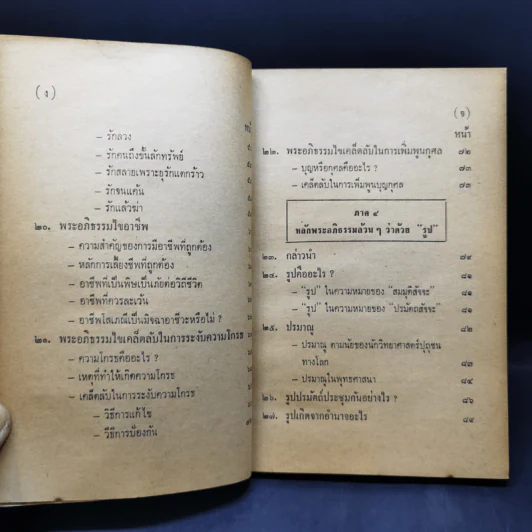 (ง)
– รักลวง
– รักคนถึงขั้นลักทรัพย์
– รักสลายเพราะยุรักแตกร้าว
– รักจนแค้น
– รักแล้วฆ่า
๒๐. พระอภิธรรมไขอาชีพ
– ความสำคัญของการมีอาชีพที่ถูกต้อง
– หลักการเลี้ยงชีพที่ถูกต้อง
– อาชีพที่เป็นพิษเป็นภัยต่อวิถีชีวิต
– อาชีพที่ควรละเว้น
– อาชีพโสเภณีเป็นมิจฉาอาชีวะหรือไม่ ?
๒๑. พระอภิธรรมไขเคล็ดลับในการระงับความโกรธ
– ความโกรธคืออะไร ?
– เหตุที่ทำให้เกิดความโกรธ
– เคล็ดลับในการระงับความโกรธ
– วิธีการแก้ไข
– วิธีการป้องกัน
(จ)
หน้า
๒๒. พระอภิธรรมไขเคล็ดลับในการเพิ่มพูนกุศล ๗๒
– บุญหรือกุศลคืออะไร ? ๗๓
– เคล็ดลับในการเพิ่มพูนบุญกุศล ๗๓
ภาค ๔
หลักพระอภิธรรมล้วน ๆ ว่าด้วย “รูป”
๒๓. กล่าวนำ
๒๔. รูปคืออะไร ? ๘๑
– “รูป” ในความหมายของ “สมมุติสัจจะ” ๘๑
– “รูป” ในความหมายของ “ปรมัตถสัจจะ” ๘๑
๒๕. ปรมาณู ๘๒
– ปรมาณู ตามนัยของนักวิทยาศาสตร์ปุถุชน
ทางโลก ๘๓
– ปรมาณูในพุทธศาสนา ๘๔
๒๖. รูปปรมัตถ์ประชุมกันอย่างไร ? ๘๖
๒๗. รูปเกิดจากอำนาจอะไร ๘๙